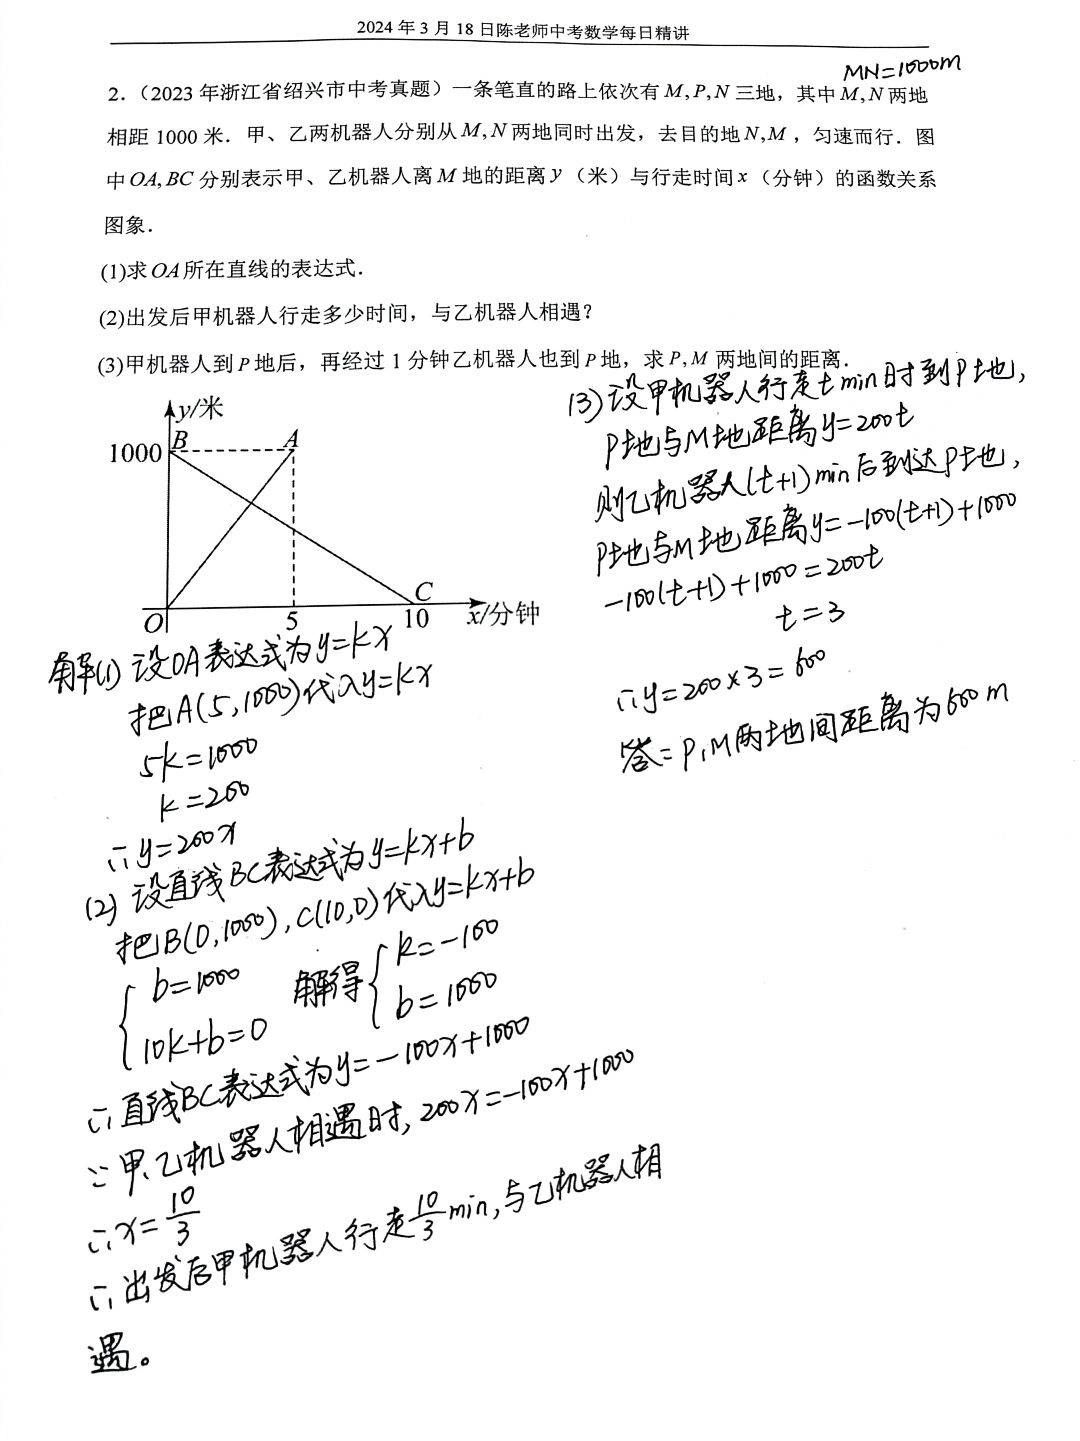 2024 年 3 月 18 日陈老师中考数学每日精讲
MN=1000m
2.（2023 年浙江省绍兴市中考真题）一条笔直的路上依次有 M,P,N 三地，其中 M,N 两地
相距 1000 米．甲、乙两机器人分别从 M,N 两地同时出发，去目的地 N,M ，匀速而行．图
中 OA,BC 分别表示甲、乙机器人离 M 地的距离 y （米）与行走时间 x （分钟）的函数关系
图象．
(1)求 OA 所在直线的表达式．
(2)出发后甲机器人行走多少时间，与乙机器人相遇？
(3)甲机器人到 P 地后，再经过 1 分钟乙机器人也到 P 地，求 P,M 两地间的距离．
y/米
1000 B A
C
O 5 10 x/分钟
解(1) 设OA表达式为y=kx
把A(5,1000)代入y=kx
5k=1000
k=200
∴y=200x
(2) 设直线BC表达式为y=kx+b
把B(0,1000),C(10,0)代入y=kx+b
{ b=1000
10k+b=0
解得 { k=-100
b=1000
∴直线BC表达式为y=-100x+1000
∵甲、乙机器人相遇时,200x=-100x+1000
∴x=10/3
∴出发后甲机器人行走10/3min,与乙机器人相
遇。
(3)设甲机器人行走t min时到P地,
P地与M地距离y=200t
则乙机器人(t+1)min后到达P地,
P地与M地距离y=-100(t+1)+1000
-100(t+1)+1000=200t
t=3
∴y=200×3=600
答=P,M两地间距离为600m